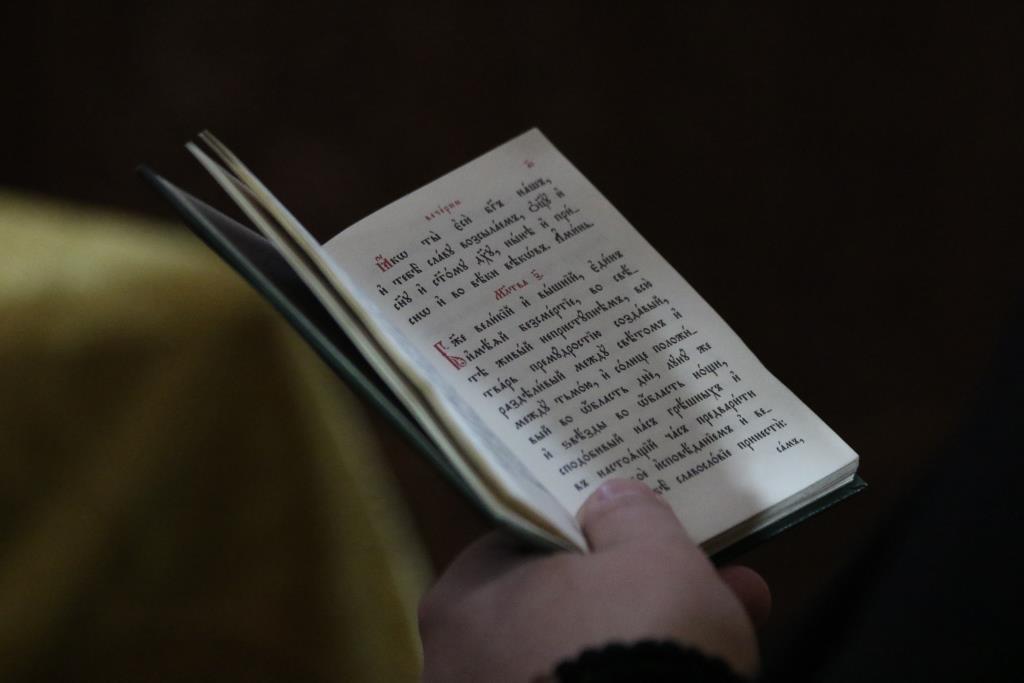 вече́рни
Ꙗ҆́кѡ ты̀ є҆сѝ бг҃ъ на́шъ,
и҆ тебѣ̀ сла́вꙋ возсыла́емъ, ѻ҆ц҃ꙋ̀ и҆
сн҃ꙋ и҆ ст҃о́мꙋ дх҃ꙋ, ны́нѣ и҆ при́-
снѡ и҆ во вѣ́ки вѣкѡ́въ. А҆ми́нь.
Мл҃тва з҃.
Бж҃е вели́кїй и҆ вы́шнїй, є҆ди́нъ
и҆мѣ́ѧй безсме́ртїе, во свѣ́-
тѣ живы́й непристꙋ́пнѣмъ, всю̀
тва́рь премꙋ́дростїю созда́вый,
раздѣли́вый междꙋ̀ свѣ́томъ и҆
междꙋ̀ тьмо́ю, и҆ со́лнце положи́-
вый во ѡ҆́бласть днѐ, лꙋнꙋ́ же
и҆ ѕвѣ́зды во ѡ҆́бласть но́щи,
сподо́бивый на́съ грѣ́шныхъ и҆
въ настоѧ́щїй ча́съ предвари́ти
и҆сповѣ́данїемъ и҆ ве-
славосло́вїе принестѝ:
са́мъ,